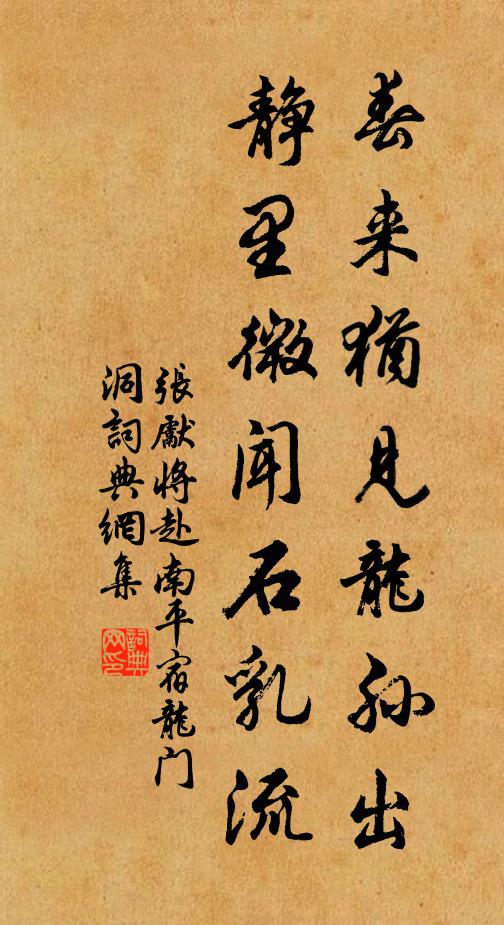 春来猶見龍孙出
静里微闻石乳流
張獻將赴南平宿龍门
洞詞典網集
詞典网印